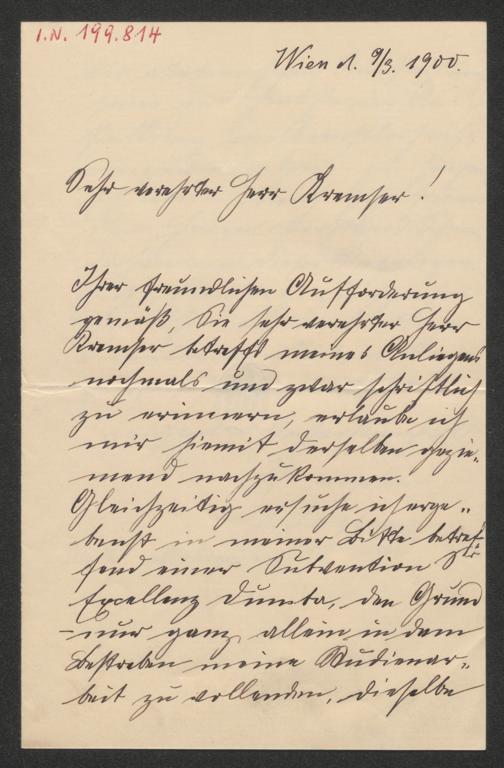 I.N. 199.814
Wien d. 9/3. 1900.
Sehr verehrter Herr Kremser!
Ihrer freundlichen Aufforderung
gemäß, Sie sehr verehrter Herr
Kremser betreffs meines Anliegens
nochmals und zwar schriftlich
zu erinnern, erlaube ich
mir hiemit derselben gezie-
mend nachzukommen.
Gleichzeitig ersuche ich erge-
benst in meiner Bitte betref-
fend einer Subvention Sr
Excellenz Dumba, den Grund
nur ganz allein in dem
Bestreben meine Studienar-
beit zu vollenden, dieselbe